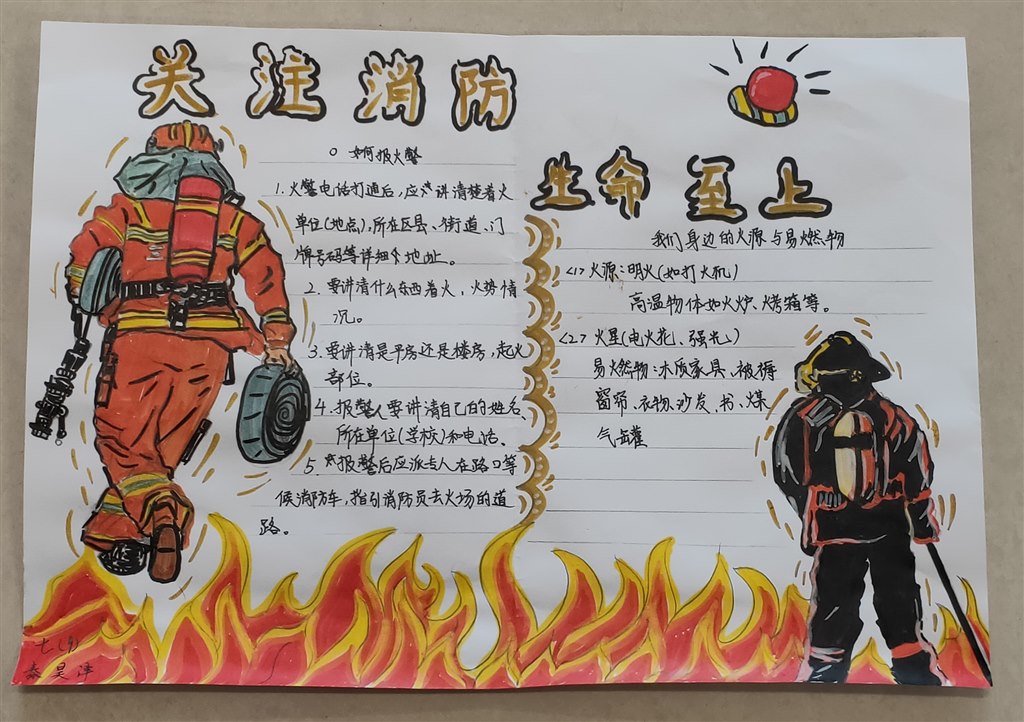 关注消防
生命至上
如何报火警
1. 火警电话打通后，应讲清楚着火
单位(地点)，所在区县、街道、门
牌号码等详细地址。
2. 要讲清什么东西着火，火势情
况。
3. 要讲清是平房还是楼房，起火
部位。
4. 报警人要讲清自己的姓名
所在单位(学校)和电话。
5. 报警后应派专人在路口等
候消防车，指引消防员去火场的道
路。
我们身边的火源与易燃物
<1> 火源：明火(如打火机)
高温物体如火炉、烤箱等。
<2> 火星(电火花、强光)
易燃物：木质家具、被褥
窗帘、衣物、沙发、书、煤
气罐
秦昊